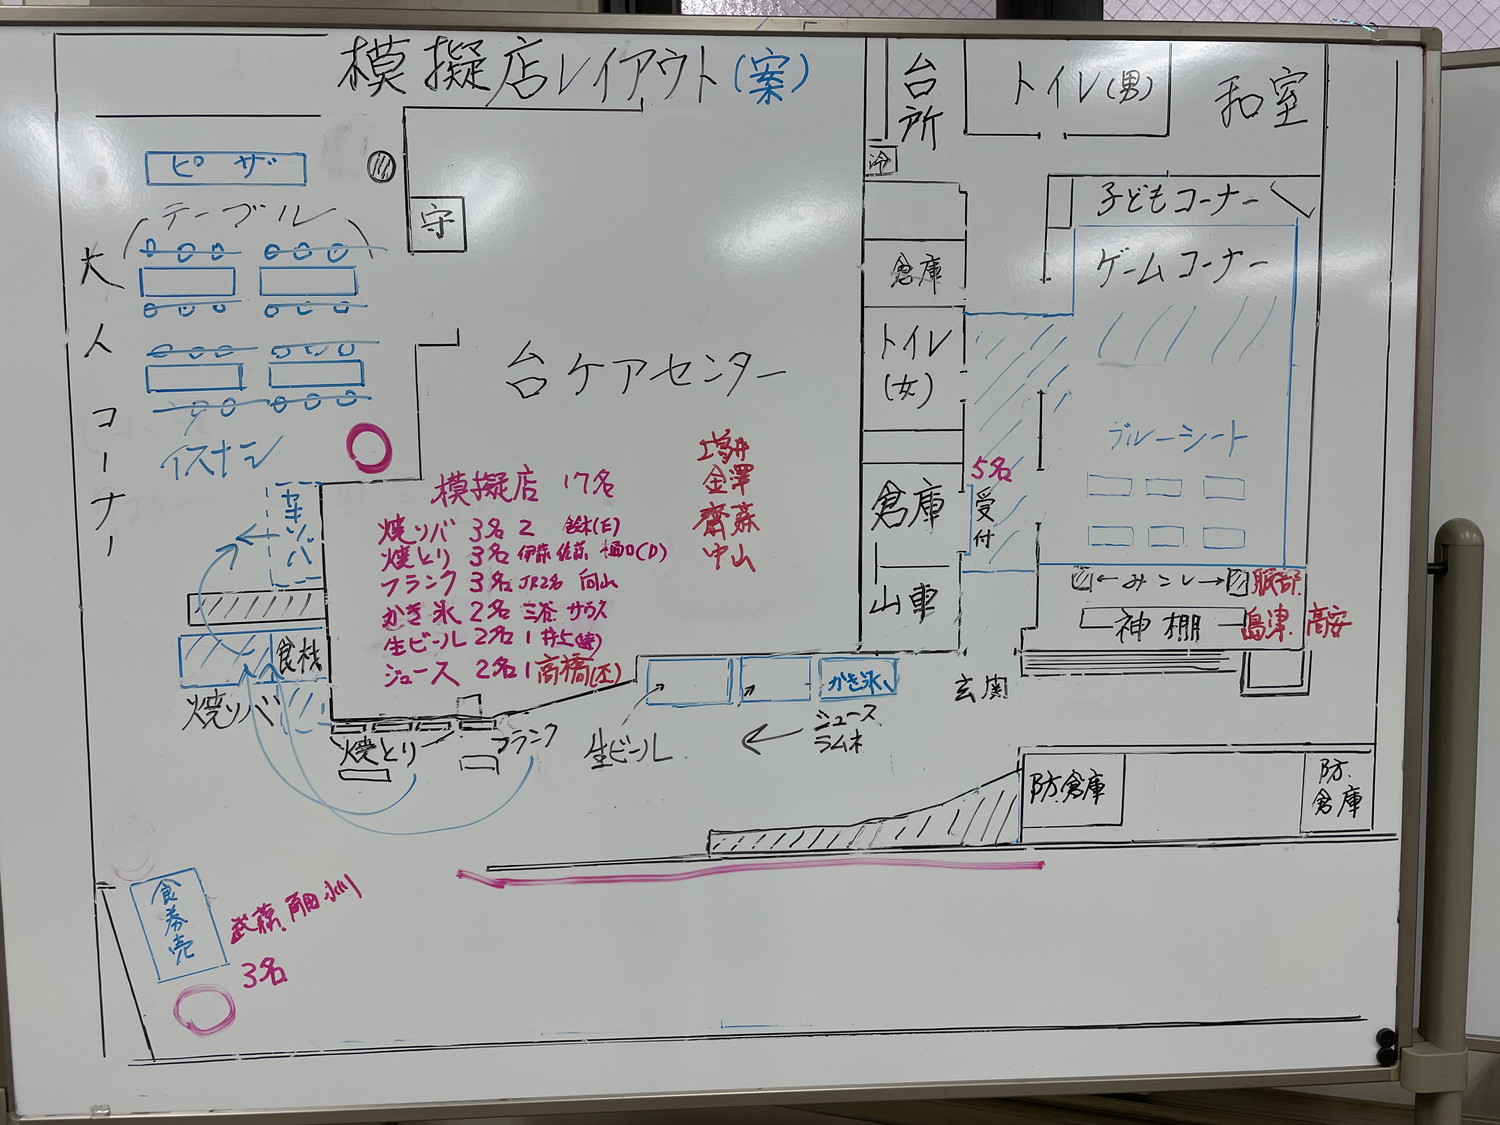 模擬店レイアウト(案)
台所
トイレ(男)
和室
冷
ピザ
守
テーブル
大人コーナー
イスナシ
ヤキソバ
食材
焼ソバ
焼とり
フランク
台ケアセンター
模擬店 17名
焼ソバ 3名 2
焼とり 3名 伊藤 佐藤 樋口(D)
フランク 3名 JR2名 向山
かき氷 2名 三谷
生ビール 2名 1 井上
ジュース 2名 1 高橋
金澤
齋藤
中山
倉庫
トイレ(女)
倉庫
山車
子どもコーナー
ゲームコーナー
ブルーシート
5名
受付
みこし
服部
神棚
島津 高安
玄関
かき氷
ジュース
ラムネ
生ビール
防.倉庫
防.倉庫
食券売
武藤
3名